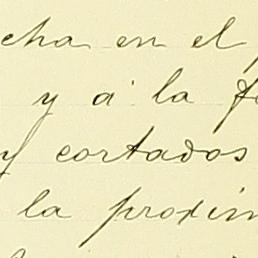 cha en el
y á la
y cortados
la proxim